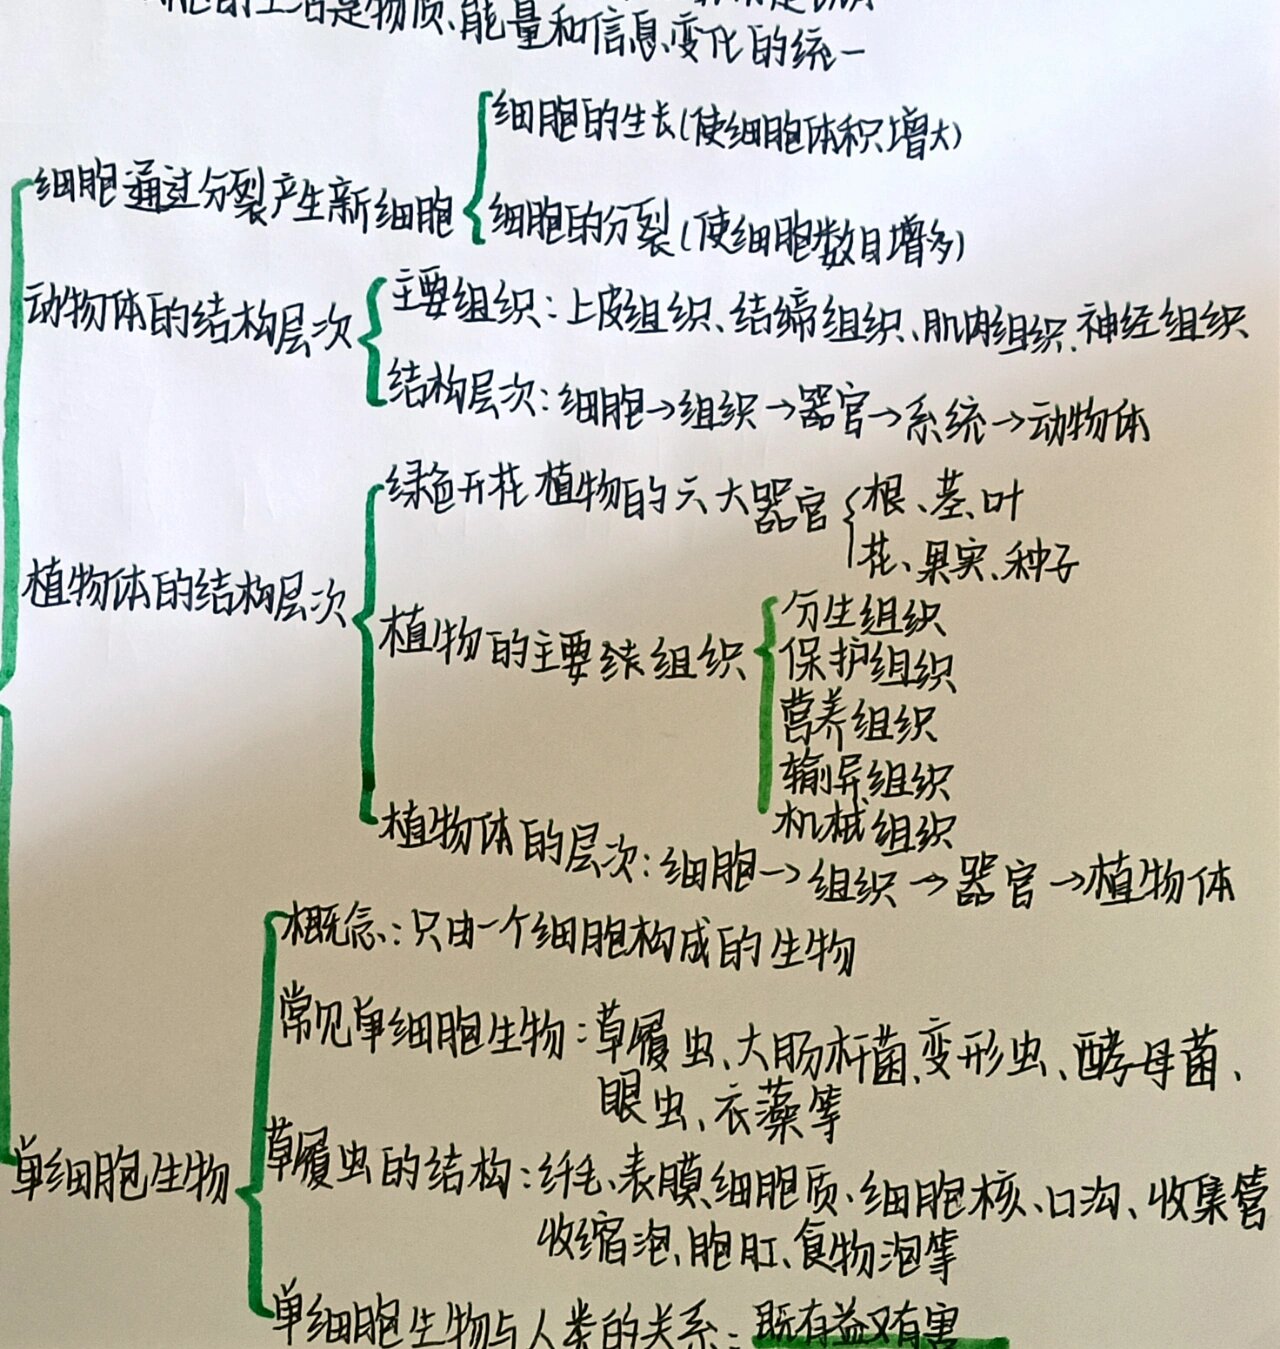 的生活是物质、能量和信息、变化的统一
细胞的生长(使细胞体积增大)
细胞通过分裂产生新细胞
细胞的分裂(使细胞数目增多)
主要组织:上皮组织、结缔组织、肌肉组织、神经组织
动物体的结构层次
结构层次:细胞→组织→器官→系统→动物体
绿色开花植物的六大器官
根、茎、叶
花、果实、种子
植物体的结构层次
植物的主要组织
分生组织
保护组织
营养组织
输导组织
机械组织
植物体的层次:细胞→组织→器官→植物体
概念:只由一个细胞构成的生物
常见单细胞生物:草履虫、大肠杆菌、变形虫、酵母菌、
眼虫、衣藻等
单细胞生物
草履虫的结构:纤毛、表膜、细胞质、细胞核、口沟、收集管
收缩泡、胞肛、食物泡等
单细胞生物与人类的关系:既有益又有害